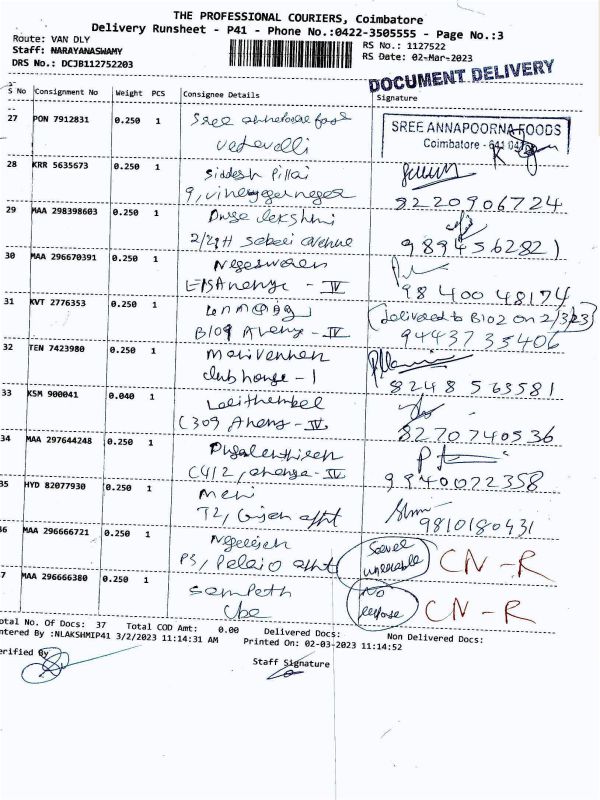 THE PROFESSIONAL COURIERS, Coimbatore
Delivery Runsheet - P41 - Phone No.:0422-3505555 - Page No.:3
Route: VAN DLY
RS No.: 1127522
Staff: NARAYANASWAMY
RS Date: 02-Mar-2023
DRS No.: DCJB112752203
DOCUMENT DELIVERY
S No Consignment No Weight PCS Consignee Details Signature
27 PON 7912831 0.250 1 Sree
SREE ANNAPOORNA FOODS
Coimbatore - 641
28 KRR 5635673 0.250 1 Siddesh Pillai
9, vinayaganagar
8220906724
29 MAA 298398603 0.250 1 Durga lekshmi
2/29H avenue
9894562821
30 MAA 296670391 0.250 1 Nageswaren
- IV
98400 48174
31 KVT 2776353 0.250 1
(delivered to B102 on 2/3/23)
B109 - IV
9443735406
32 TEN 7423980 0.250 1 Marivannan
club house - 1
8248563581
33 KSM 900041 0.040 1
C309 - IV
8270740536
34 MAA 297644248 0.250 1
C412, - IV
9940072358
35 HYD 82077930 0.250 1 Mani
T2,
9810180431
36 MAA 296666721 0.250 1
P3,
CN - R
37 MAA 296666380 0.250 1 Sampath
Cbe
No
CN - R
Total No. Of Docs: 37 Total COD Amt: 0.00 Delivered Docs: Non Delivered Docs:
Entered By :NLAKSHMIP41 3/2/2023 11:14:31 AM Printed On: 02-03-2023 11:14:52
Verified By
Staff Signature